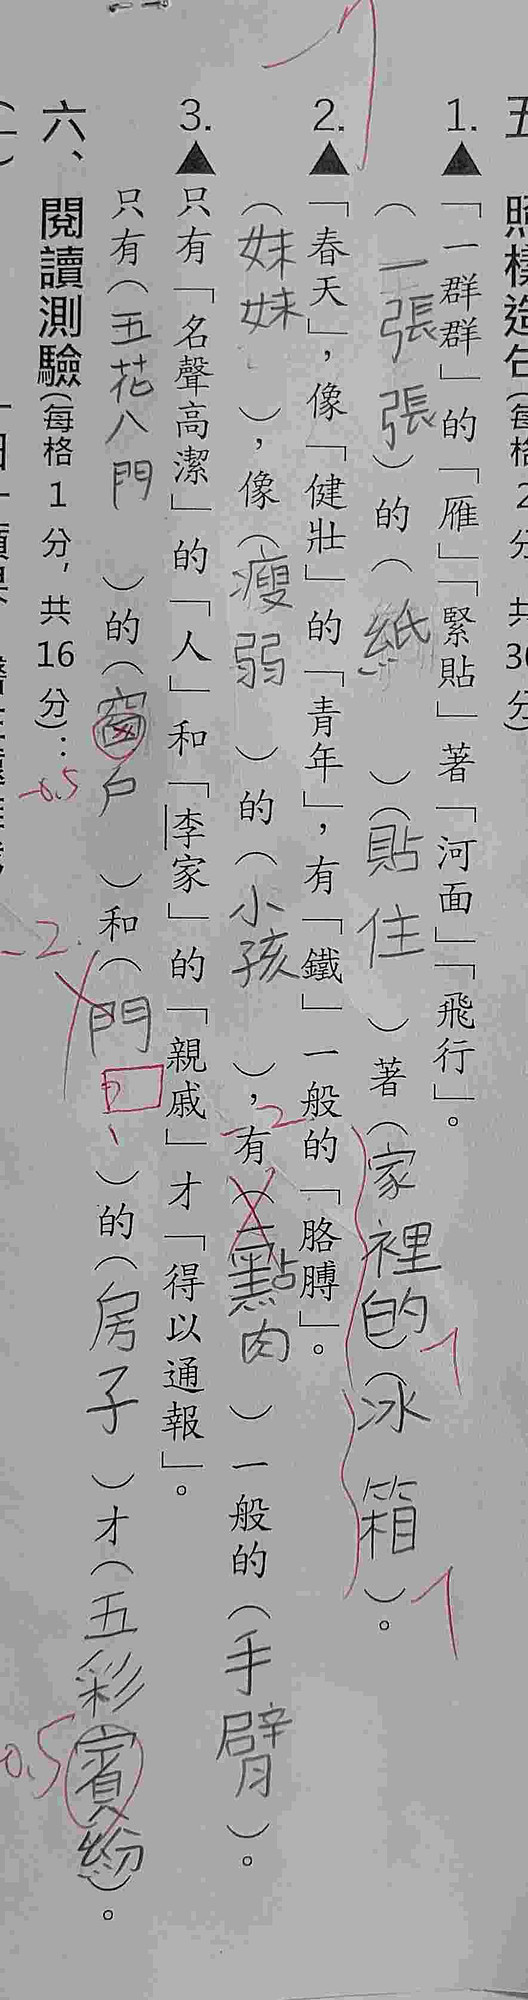 五、照樣造句(每格2分,共30分)
1.▲「一群群」的「雁」「緊貼」著「河面」「飛行」。
(一張張)的(紙)(貼住)著(家裡的)(冰箱)。
2.▲「春天」,像「健壯」的「青年」,有「鐵」一般的「胳膊」。
(妹妹),像(瘦弱)的(小孩),有(一點肉)一般的(手臂)。
3.▲只有「名聲高潔」的「人」和「李家」的「親戚」才「得以通報」。
只有(五花八門)的(窗戶)和(門)的(房子)才(五彩賓紛)。
六、閱讀測驗(每格1分,共16分):
-1
-1
-2
-0.5
-2
-0.5